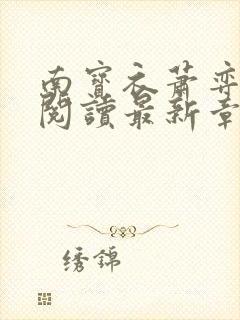 南寳衣蕭弈
閱讀最新章
绣錦